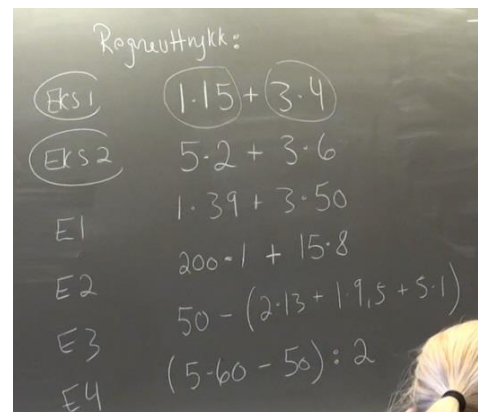 Regneuttrykk:
Eks 1 1·15 + 3·4
Eks 2 5·2 + 3·6
E1 1·39 + 3·50
E2 200·1 + 15·8
E3 50 - (2·13 + 1·9,5 + 5·1)
E4 (5·60 - 50) : 2